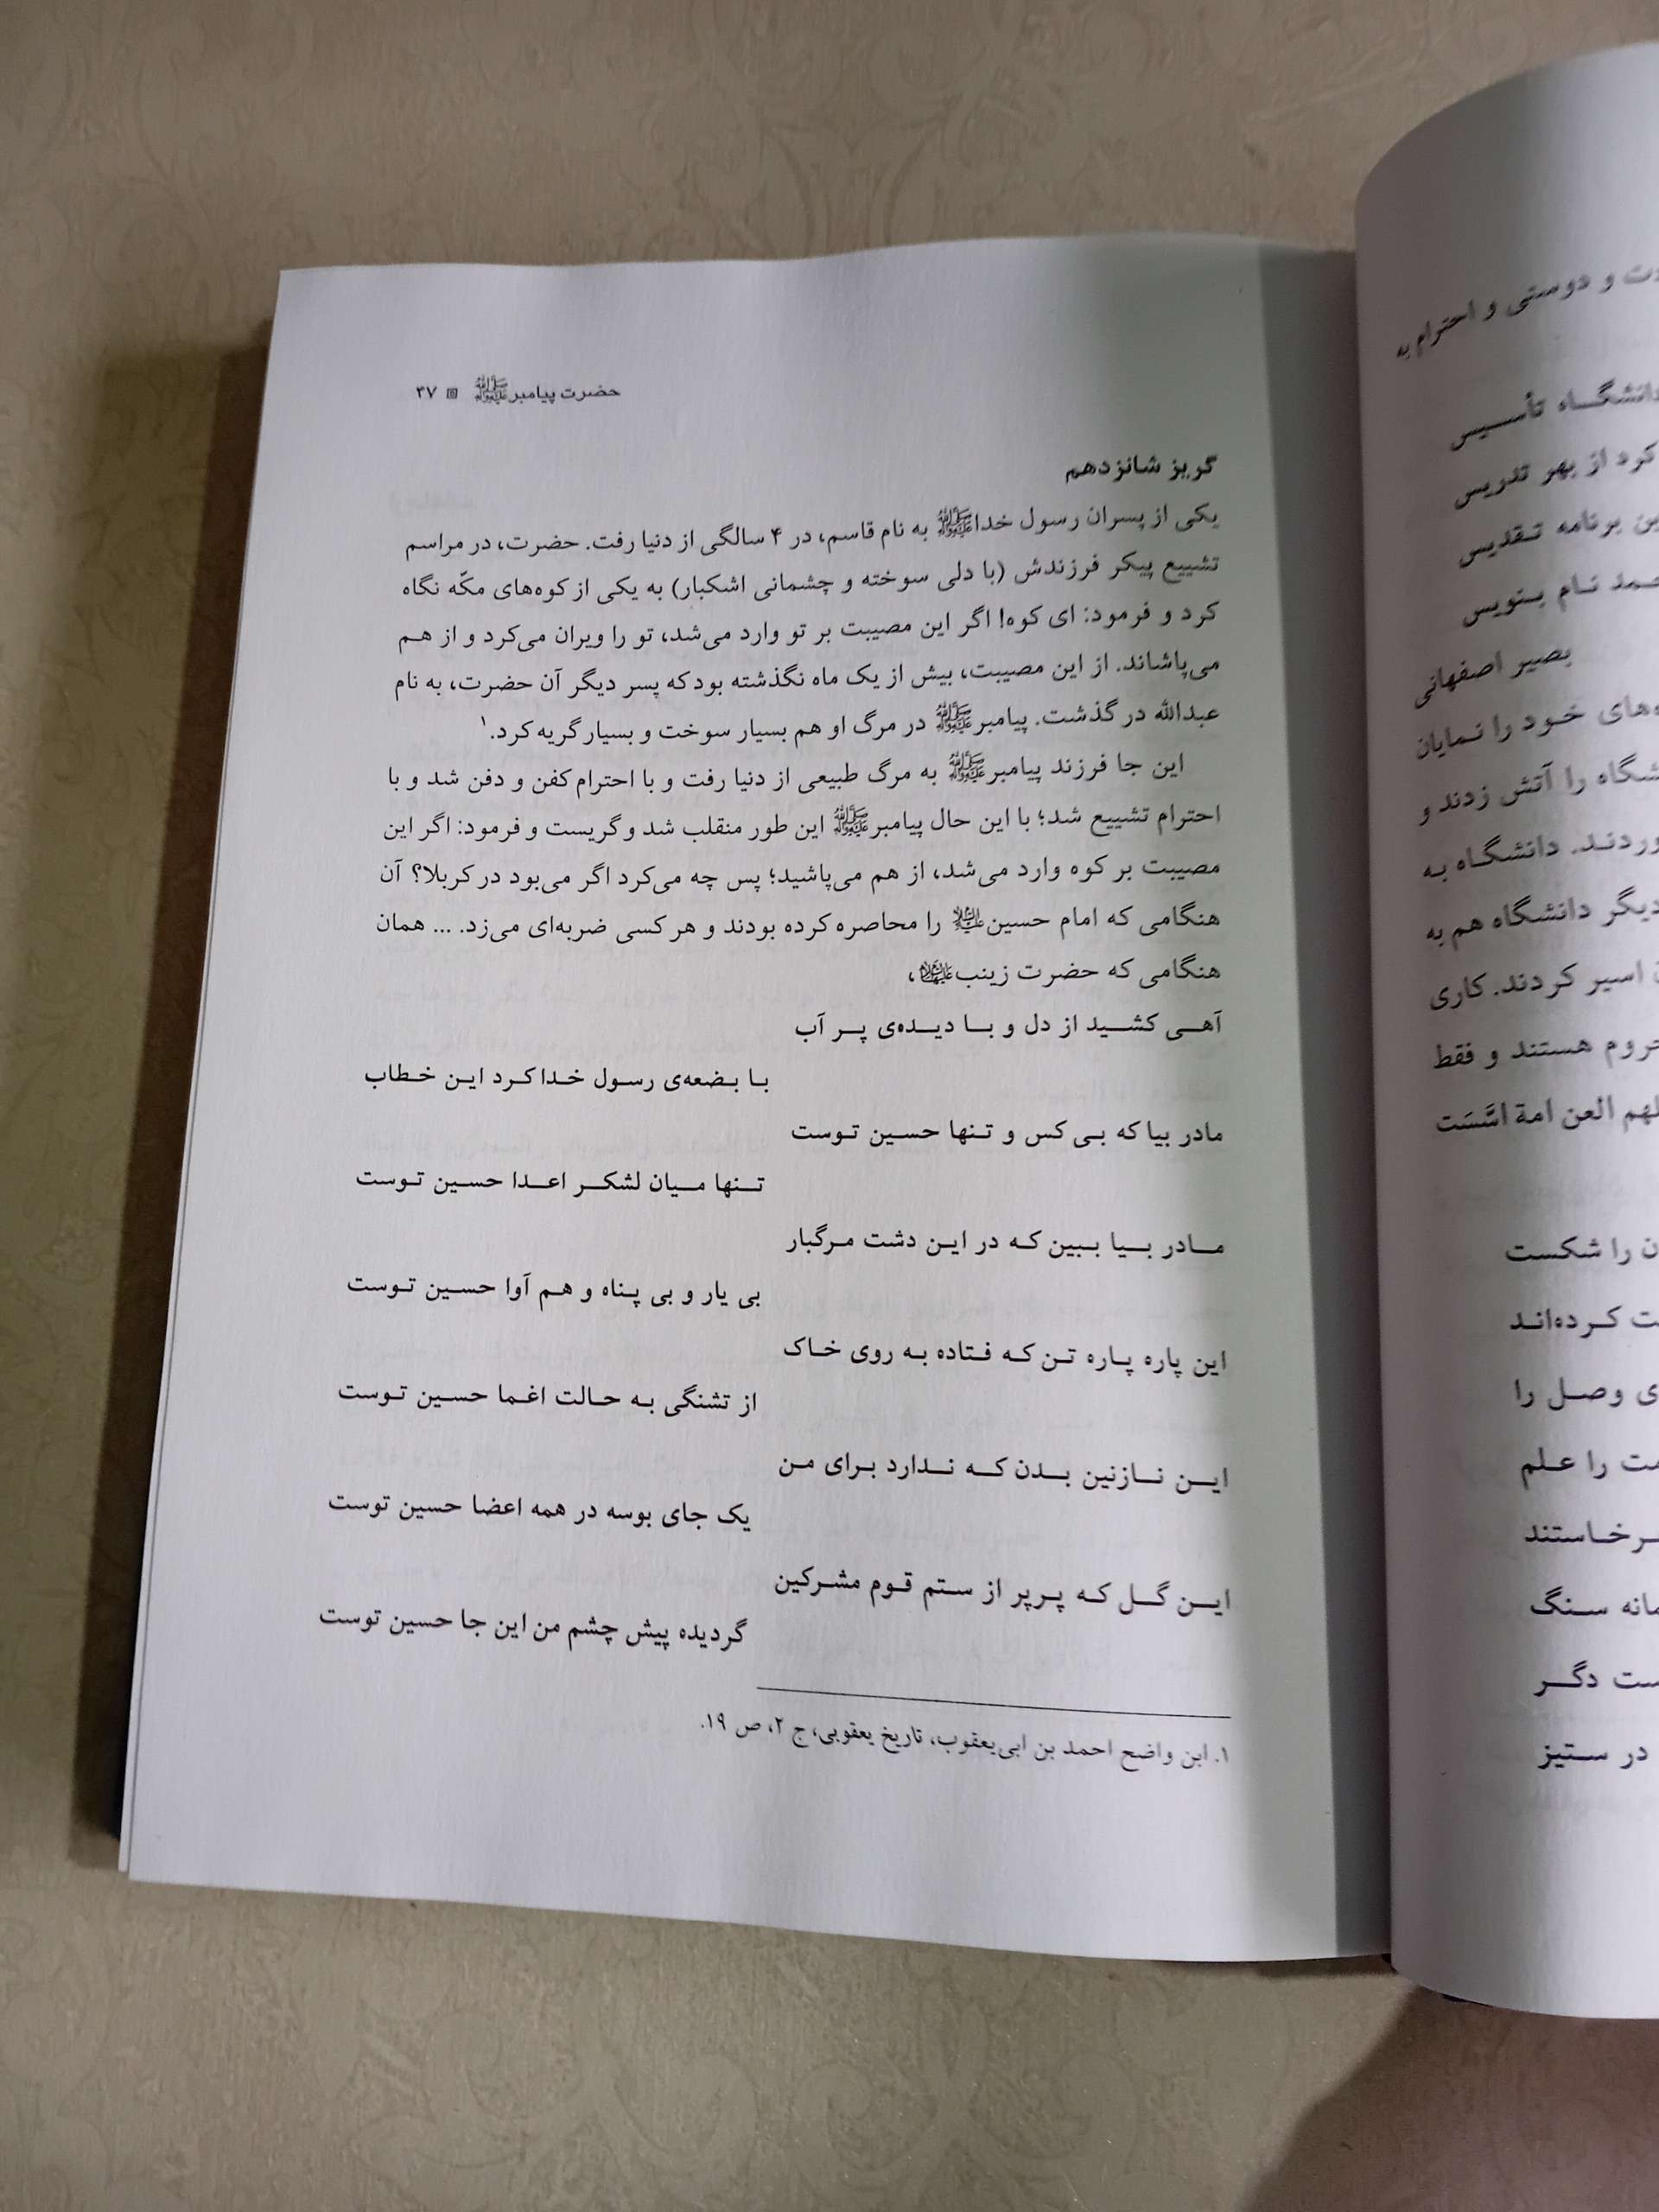 حضرت پیامبرﷺ ▣ ۴۷
گریز شانزدهم
یکی از پسران رسول خداﷺ به نام قاسم، در ۴ سالگی از دنیا رفت. حضرت، در مراسم
تشییع پیکر فرزندش (با دلی سوخته و چشمانی اشکبار) به یکی از کوه‌های مکّه نگاه
کرد و فرمود: ای کوه! اگر این مصیبت بر تو وارد می‌شد، تو را ویران می‌کرد و از هم
می‌پاشاند. از این مصیبت، بیش از یک ماه نگذشته بود که پسر دیگر آن حضرت، به نام
عبدالله درگذشت. پیامبرﷺ در مرگ او هم بسیار سوخت و بسیار گریه کرد.۱
این جا فرزند پیامبرﷺ به مرگ طبیعی از دنیا رفت و با احترام کفن و دفن شد و با
احترام تشییع شد؛ با این حال پیامبرﷺ این طور منقلب شد و گریست و فرمود: اگر این
مصیبت بر کوه وارد می‌شد، از هم می‌پاشید؛ پس چه می‌کرد اگر می‌بود در کربلا؟ آن
هنگامی که امام حسین علیه‌السلام را محاصره کرده بودند و هر کسی ضربه‌ای می‌زد. ... همان
هنگامی که حضرت زینب علیهاالسلام،
آهی کشید از دل و با دیده‌ی پر آب
با بضعه‌ی رسول خدا کرد این خطاب
مادر بیا که بی کس و تنها حسین توست
تنها میان لشکر اعدا حسین توست
مادر بیا ببین که در این دشت مرگبار
بی یار و بی پناه و هم آوا حسین توست
این پاره پاره تن که فتاده به روی خاک
از تشنگی به حالت اغما حسین توست
این نازنین بدن که ندارد برای من
یک جای بوسه در همه اعضا حسین توست
این گل که پرپر از ستم قوم مشرکین
گردیده پیش چشم من این جا حسین توست
۱. ابن واضح احمد بن ابی‌یعقوب، تاریخ یعقوبی، ج ۲، ص ۱۹.
و دوستی و احترام به
دانشگاه تأسیس
کرد از بهر تدریس
این برنامه تقدیس
نام بنویس
بصیر اصفهانی
خود را نمایان
را آتش زدند و
دانشگاه به
دیگر دانشگاه هم به
اسیر کردند. کاری
هستند و فقط
العن امة اسَّسَت
را شکست
کرده‌اند
وصل را
را علم
سنگ
دگر
در ستیز